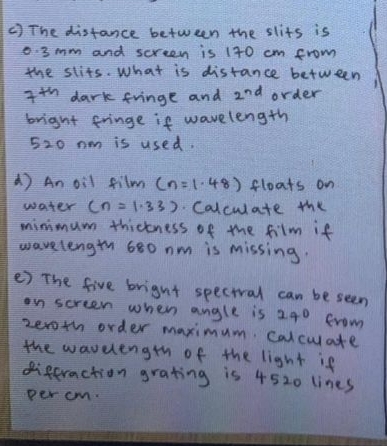 c) The distance between the slits is
0.3 mm and screen is 170 cm from
the slits. What is distance between
7th dark fringe and 2nd order
bright fringe if wavelength
520 nm is used.
d) An oil film (n=1.48) floats on
water (n=1.33). Calculate the
minimum thickness of the film if
wavelength 680 nm is missing.
e) The five bright spectral can be seen
on screen when angle is 240 from
zeroth order maximum. Calculate
the wavelength of the light if
diffraction grating is 4520 lines
per cm.